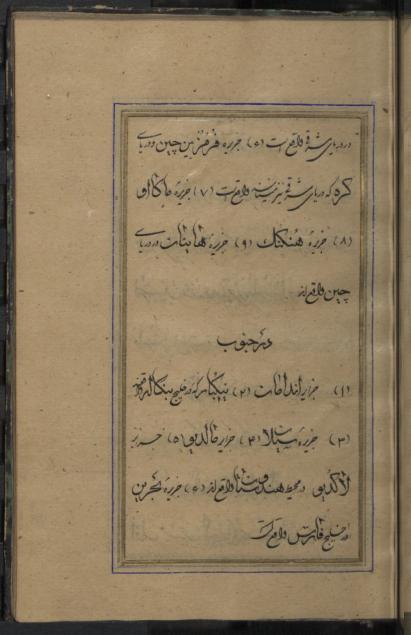 در دریای شرقی واقع است (۶) جزیره هرمز بین چین و دریای
کره که دریای شرقی نیز مینامند واقع است (۷) جزیرهٔ ماکااو
(۸) جزیرهٔ هنکنک (۹) جزیره هاینات در دریای
چین واقع‌اند
در جنوب
(۱) جزایر اندامات (۲) نیکبار که در خلیج بنکاله واقع
(۳) جزیرهٔ سیلا (۴) جزایر مالدیو (۵) جزایر
لاکدیو در محیط هندوستان واقع‌اند (۶) جزیره بحرین
در خلیج فارس واقع است